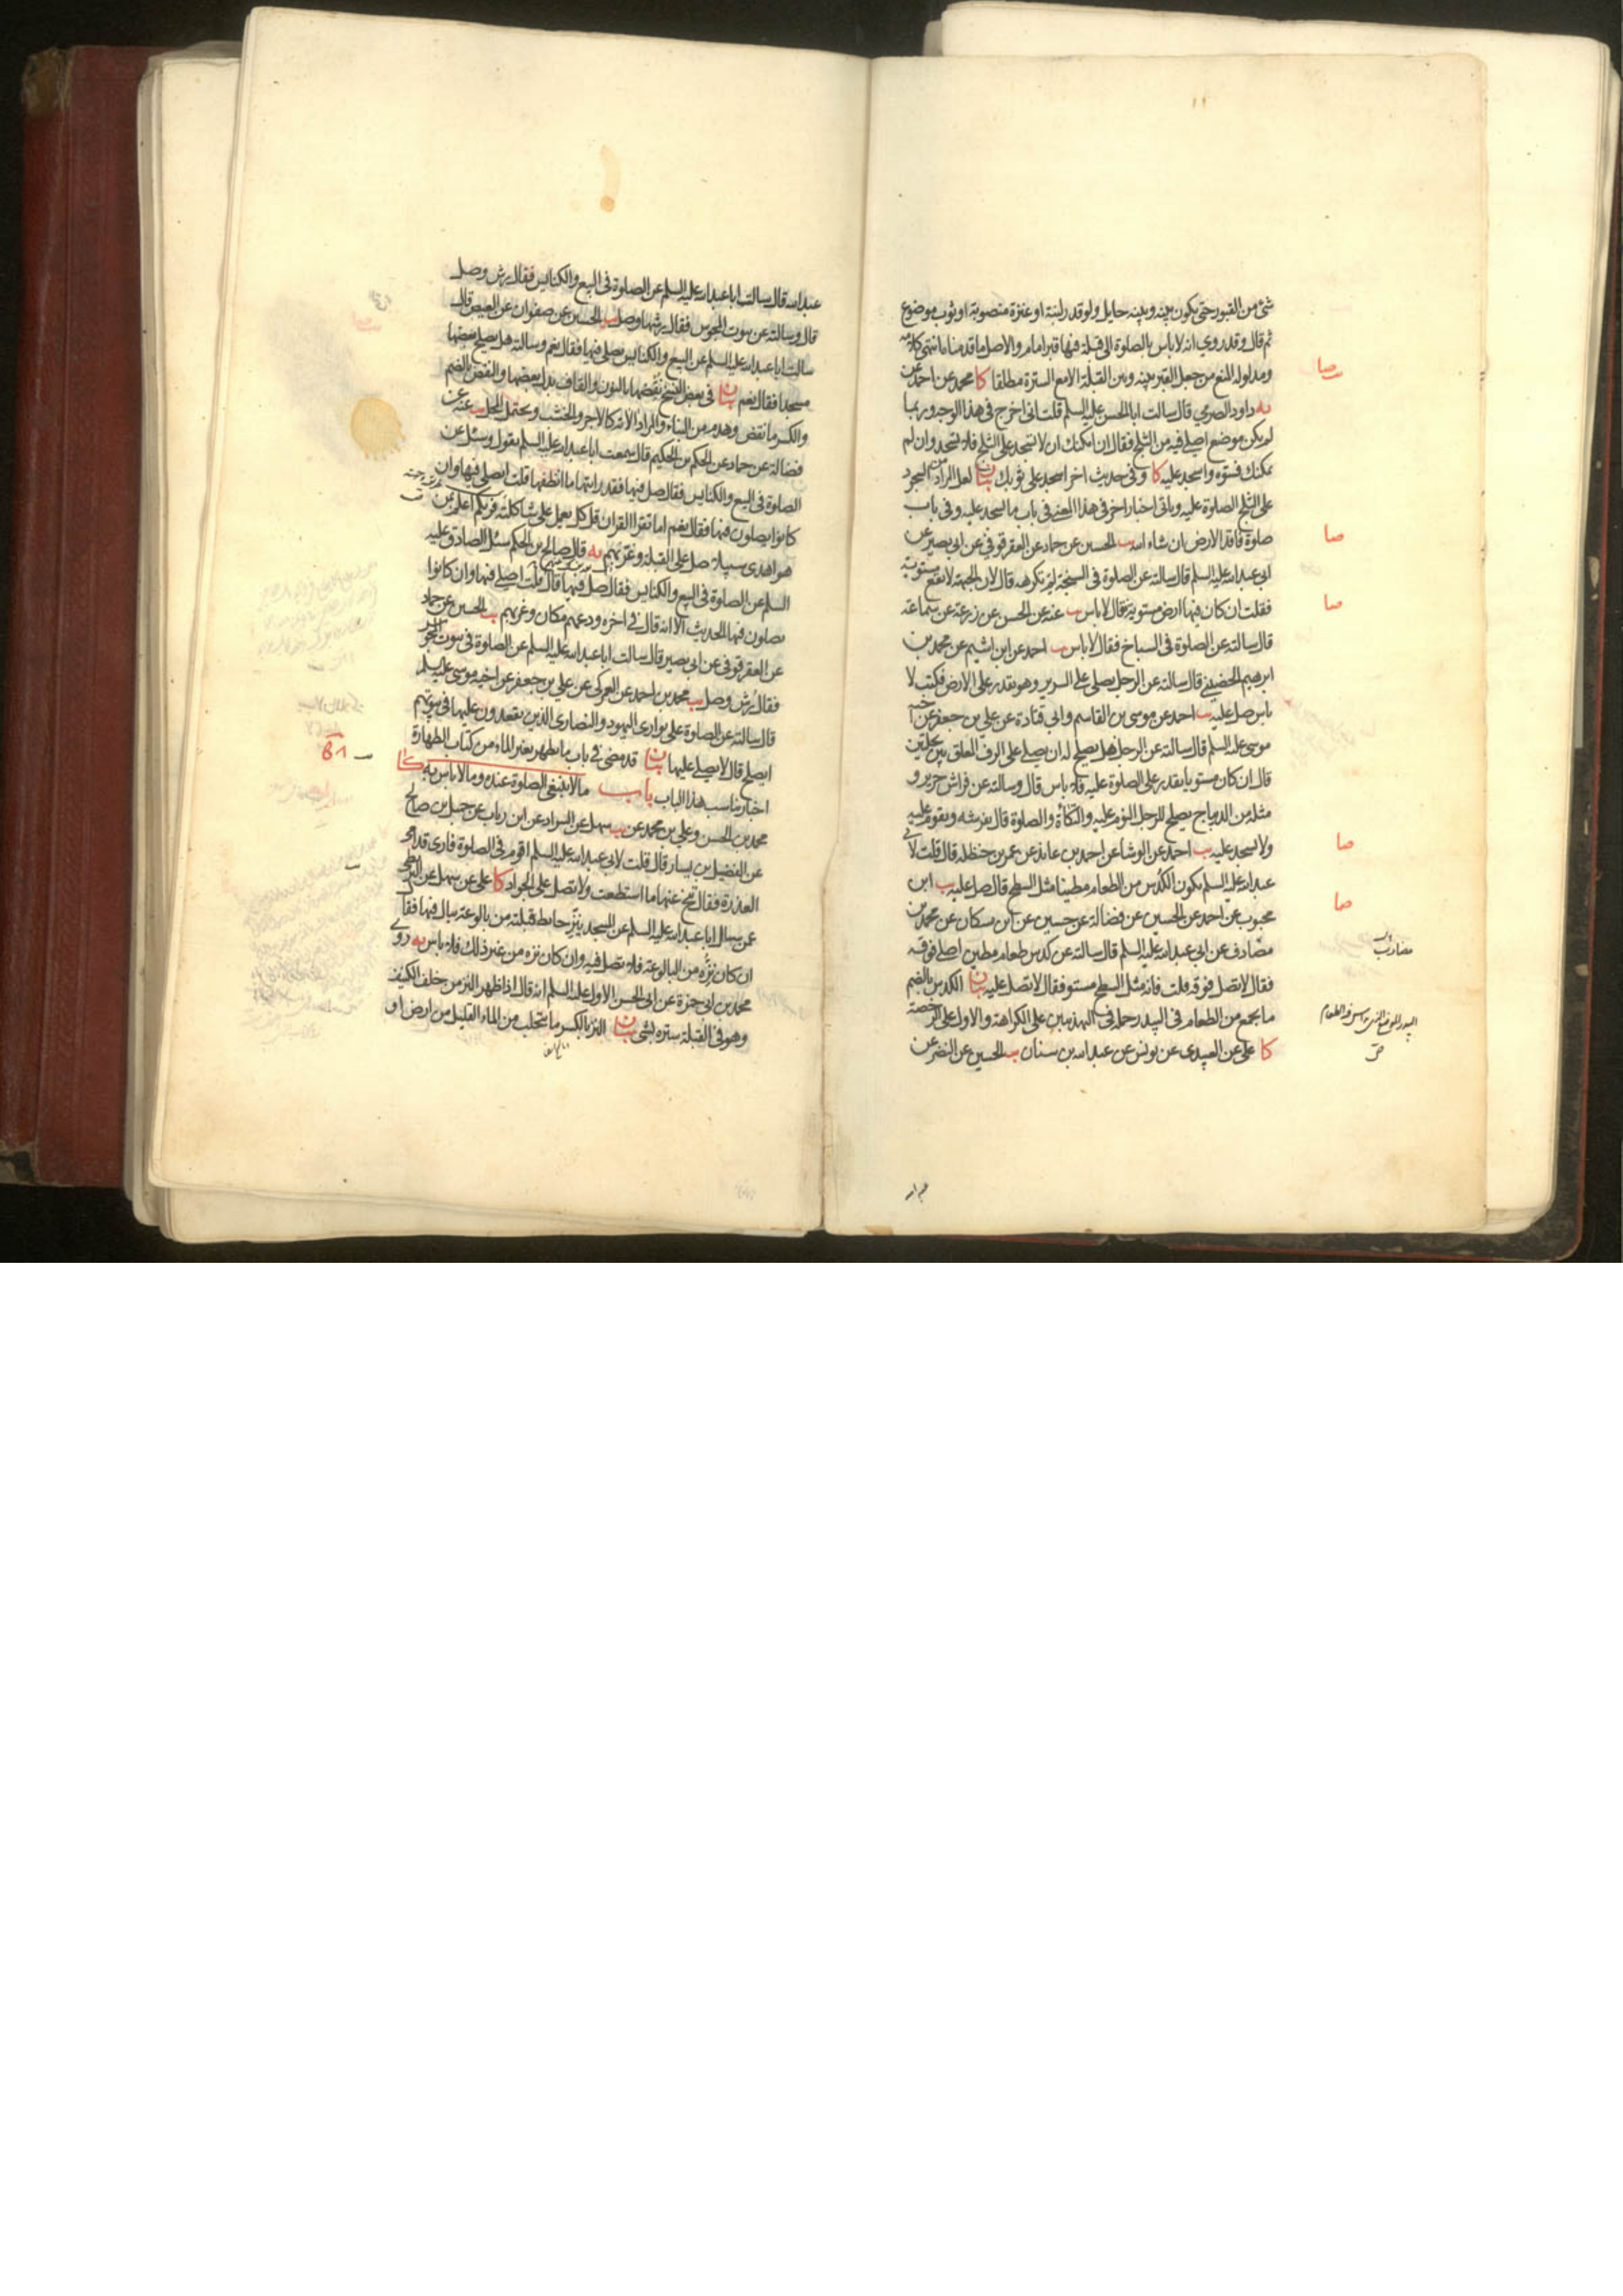 شئ من القبور حتى يكون بينه وبينه حايل ولو قدر لبنة او عنزة منصوبة او ثوب موضوع
ثم قال وقد روي انه لا باس بالصلوة الى قبلة فيها قبر امام والاصل ما قدمناه انتهى كلامه
ومدلوله المنع من جعل القبر بينه وبين القبلة الا مع السترة مطلقا كا محمد عن احمد عن
يه داود الصرمي قال سالت ابا الحسن عليه السلم قلت اني اخرج في هذا الوجه وربما
لم يكن موضع اصلي فيه من الثلج فقال ان امكنك ان لا تسجد على الثلج فلا تسجد وان لم
يمكنك فسوه واسجد عليه كا وفي حديث اخر اسجد على ثوبك بيان لعل المراد من السجود
على الثلج الصلوة عليه وياتي اخبار اخر في هذا المعنى في باب ما يسجد عليه وفي باب
صلوة فاقد الارض ان شاء الله يب الحسين عن حماد عن العقرقوفي عن ابي بصير عن
ابي عبد الله عليه السلم قال سالته عن الصلوة في السبخة لم تكرهه قال لان الجبهة لا تقع مستوية
فقلت ان كان فيها ارض مستوية قال لا باس يب عنه عن الحسن عن زرعة عن سماعة
قال سالته عن الصلوة في السباخ فقال لا باس يب احمد عن ابن اشيم عن محمد بن
ابرهيم الحضيني قال سالته عن الرجل يصلي على السرير وهو يقدر على الارض فكتب لا
باس صل عليه يب احمد عن موسى بن القاسم وابي قتادة عن علي بن جعفر عن اخيه
موسى عليه السلم قال سالته عن الرجل هل يصلح له ان يصلي على الرف المعلق بين نخلتين
قال ان كان مستويا يقدر على الصلوة عليه فلا باس قال وسالته عن فراش حرير و
مثله من الديباج يصلح للرجل النوم عليه والتكأة والصلوة قال يفرشه ويقوم عليه
ولا يسجد عليه يب احمد عن الوشا عن احمد بن عائذ عن عمر بن حنظلة قال قلت لابي
عبد الله عليه السلم يكون الكدس من الطعام مطينا مثل السطح قال صل عليه يب ابن
محبوب عن احمد عن الحسين عن فضالة عن حسين عن ابن مسكان عن محمد بن
مصادف عن ابي عبد الله عليه السلم قال سالته عن كدس طعام مطين اصلي فوقه
فقال لا تصل فوقه قلت فانه مثل السطح مستو فقال لا تصل عليه بيان الكدس بالضم
ما يجمع من الطعام في البيدر حمله في التهذيبين على الكراهة والاول على الرخصة
كا علي عن العبيدي عن يونس عن عبد الله بن سنان يب الحسين عن النضر عن
صا
صا
صا
صا
صا
مضارب
عبد الله
عبد الله قال سالت ابا عبد الله عليه السلم عن الصلوة في البيع والكنايس فقال رش وصل
قال وسالته عن بيوت المجوس فقال رشها وصل يب الحسين عن صفوان عن العيص قال
سالت ابا عبد الله عليه السلم عن البيع والكنايس يصلى فيها فقال نعم وسالته هل يصلح بعضها
مسجدا فقال نعم بيان في بعض النسخ نقضها بالنون والقاف بدل بعضها والنقض بالضم
والكسر ما نقض وهدم من البناء والمراد الآلة كالاجر والخشب ويحتمل المحل يب عنه عن
فضالة عن حماد عن الحكم بن الحكيم قال سمعت ابا عبد الله عليه السلم يقول وسئل عن
الصلوة في البيع والكنايس فقال صل فيها فقد رايتها ما انظفها قلت ايصلى فيها وان
كانوا يصلون فيها فقال نعم اما تقرا القران قل كل يعمل على شاكلته فربكم اعلم بمن
هو اهدى سبيلا صل على القبلة وغربهم يه قال صالح بن الحكم سئل الصادق عليه
السلم عن الصلوة في البيع والكنايس فقال صل فيها قال قلت اصلي فيها وان كانوا
يصلون فيها الحديث الا انه قال في اخره ودعهم مكان وغربهم يب الحسين عن حماد
عن العقرقوفي عن ابي بصير قال سالت ابا عبد الله عليه السلم عن الصلوة في بيوت المجوس
فقال رش وصل يب محمد بن احمد عن العمركي عن علي بن جعفر عن اخيه موسى عليه السلم
قال سالته عن الصلوة على بواري اليهود والنصارى الذين يقعدون عليها في بيوتهم
ايصلح قال لا يصلى عليها بيان قد مضى في باب ما يطهر بغير الماء من كتاب الطهارة
اخبار تناسب هذا الباب باب ما لا ينبغي الصلوة عنده وما لا باس به كا
محمد بن الحسن وعلي بن محمد عن يب سهل عن السراد عن ابن رباب عن جميل بن صالح
عن الفضيل بن يسار قال قلت لابي عبد الله عليه السلم اقوم في الصلوة فارى قدامي
العذرة فقال تنح عنها ما استطعت ولا تصل على الجواد كا علي عن سهل عن البزنطي
عمن سال ابا عبد الله عليه السلم عن المسجد ينز حائط قبلته من بالوعة يبال فيها فقال
ان كان نزه من البالوعة فلا تصل فيه وان كان نزه من غير ذلك فلا باس يه روى
محمد بن ابي حمزة عن ابي الحسن الاول عليه السلم انه قال اذا ظهر النز من خلف الكنيف
وهو في القبلة ستره بشئ بيان النز بالكسر ما يتحلب من الماء القليل من ارض او